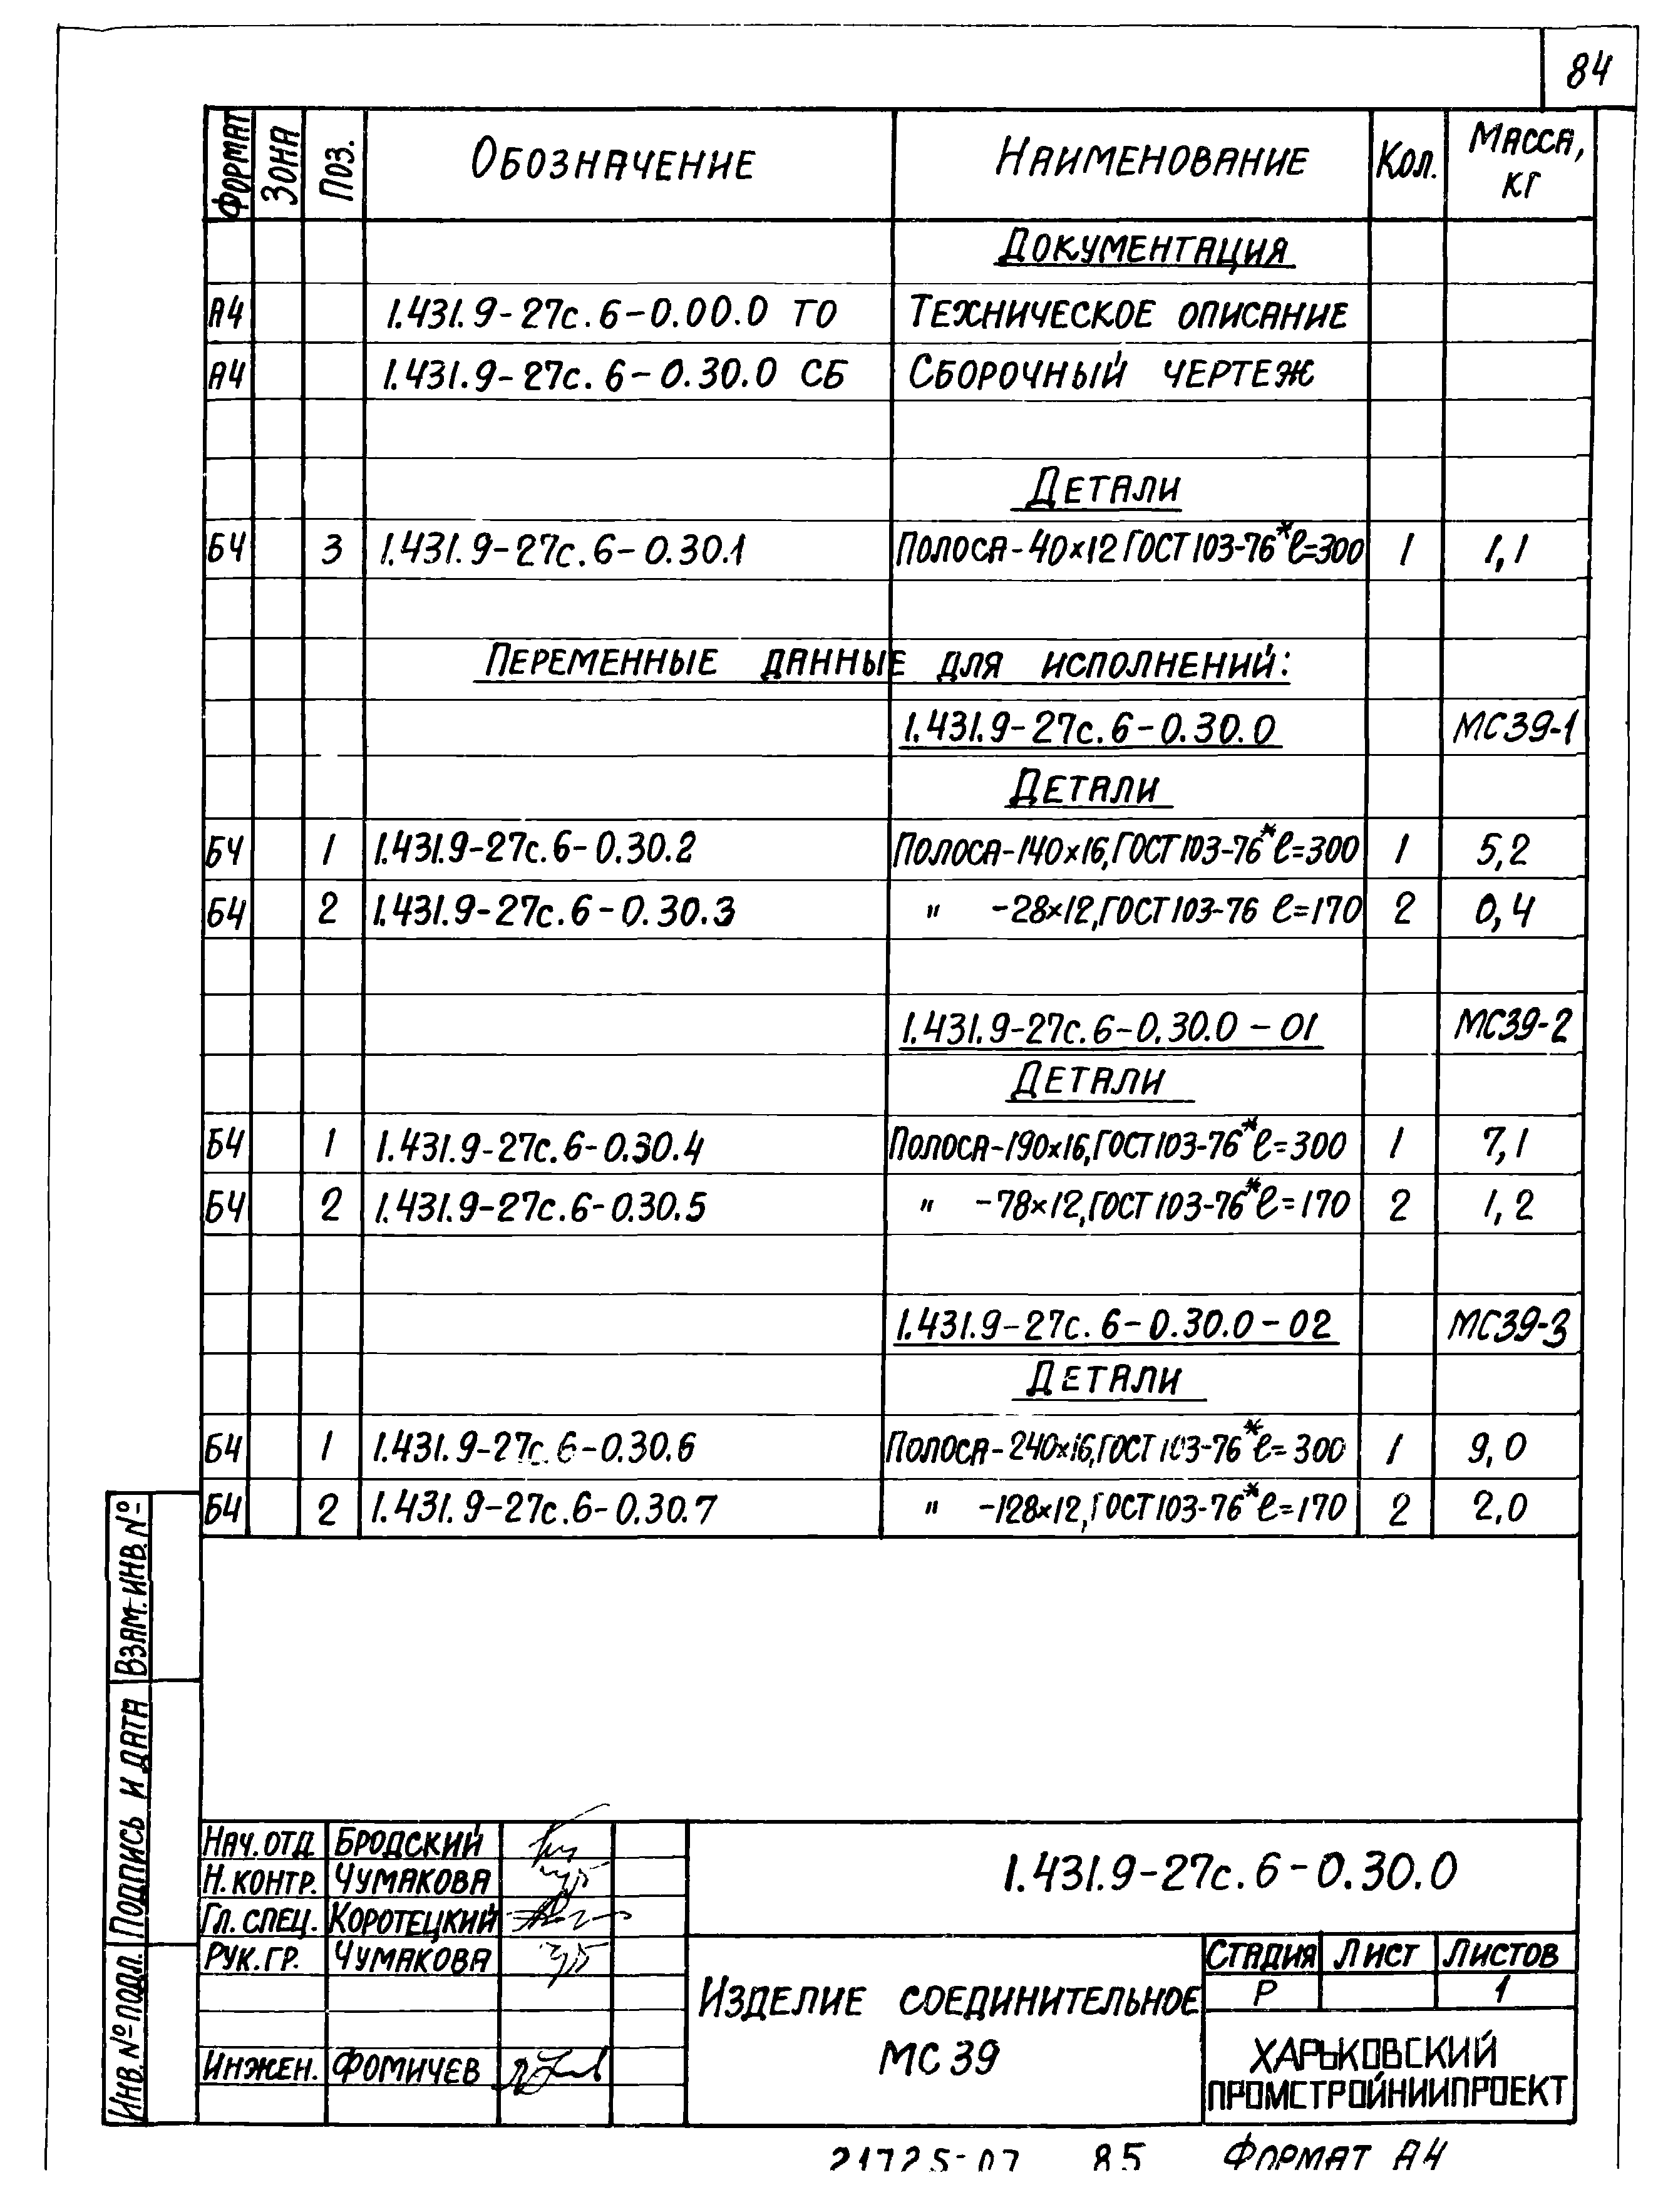 84
Формат Зона Поз. Обозначение Наименование Кол. Масса, кг
Документация
А4 1.431.9-27с.6-0.00.0 ТО Техническое описание
А4 1.431.9-27с.6-0.30.0 СБ Сборочный чертеж
Детали
БЧ 3 1.431.9-27с.6-0.30.1 Полоса-40×12 ГОСТ 103-76* ℓ=300 1 1,1
Переменные данные для исполнений:
1.431.9-27с.6-0.30.0 МС39-1
Детали
БЧ 1 1.431.9-27с.6-0.30.2 Полоса-140×16, ГОСТ 103-76* ℓ=300 1 5,2
БЧ 2 1.431.9-27с.6-0.30.3 " -28×12, ГОСТ 103-76 ℓ=170 2 0,4
1.431.9-27с.6-0.30.0-01 МС39-2
Детали
БЧ 1 1.431.9-27с.6-0.30.4 Полоса-190×16, ГОСТ 103-76* ℓ=300 1 7,1
БЧ 2 1.431.9-27с.6-0.30.5 " -78×12, ГОСТ 103-76* ℓ=170 2 1,2
1.431.9-27с.6-0.30.0-02 МС39-3
Детали
БЧ 1 1.431.9-27с.6-0.30.6 Полоса-240×16, ГОСТ 103-76* ℓ=300 1 9,0
БЧ 2 1.431.9-27с.6-0.30.7 " -128×12, ГОСТ 103-76* ℓ=170 2 2,0
Взам. инв. №
Подпись и дата
Инв. № подл.
Нач. отд Бродский
Н. контр. Чумакова
Гл. спец. Коротецкий
Рук. гр. Чумакова
Инжен. Фомичев
1.431.9-27с.6-0.30.0
Изделие соединительное
МС 39
Стадия Лист Листов
Р 1
ХАРЬКОВСКИЙ
ПРОМСТРОЙНИИПРОЕКТ
21725-07 85 Формат А4